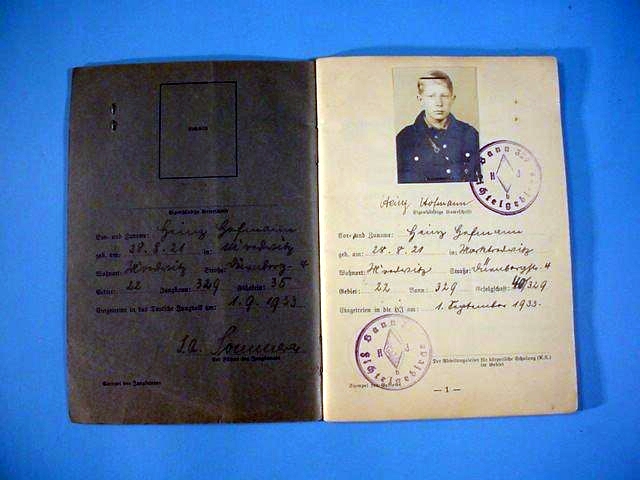 Lichtbild
Eigenhändige Unterschrift
Vor- und Zuname: Heinz Hofmann
geb. am: 28.8.21 in:
Wohnort: Straße:
Gebiet: 22 Jungbann: 329 Fähnlein: 35
Eingetreten in das Deutsche Jungvolk am: 1.9.1933
Der Führer des Jungbannes
Stempel des Jungbannes
Bann 329
H J
Fichtelgebirge
Heinz Hofmann
Eigenhändige Unterschrift
Vor- und Zuname: Heinz Hofmann
geb. am: 28.8.21 in: Marktredwitz
Wohnort: Straße:
Gebiet: 22 Bann: 329 Gefolgschaft: 40/329
Eingetreten in die HJ am: 1. September 1933.
Bann
H J
Fichtelgebirge
Der Abteilungsleiter für körperliche Schulung (K.S.)
im Gebiet
Stempel des
— 1 —